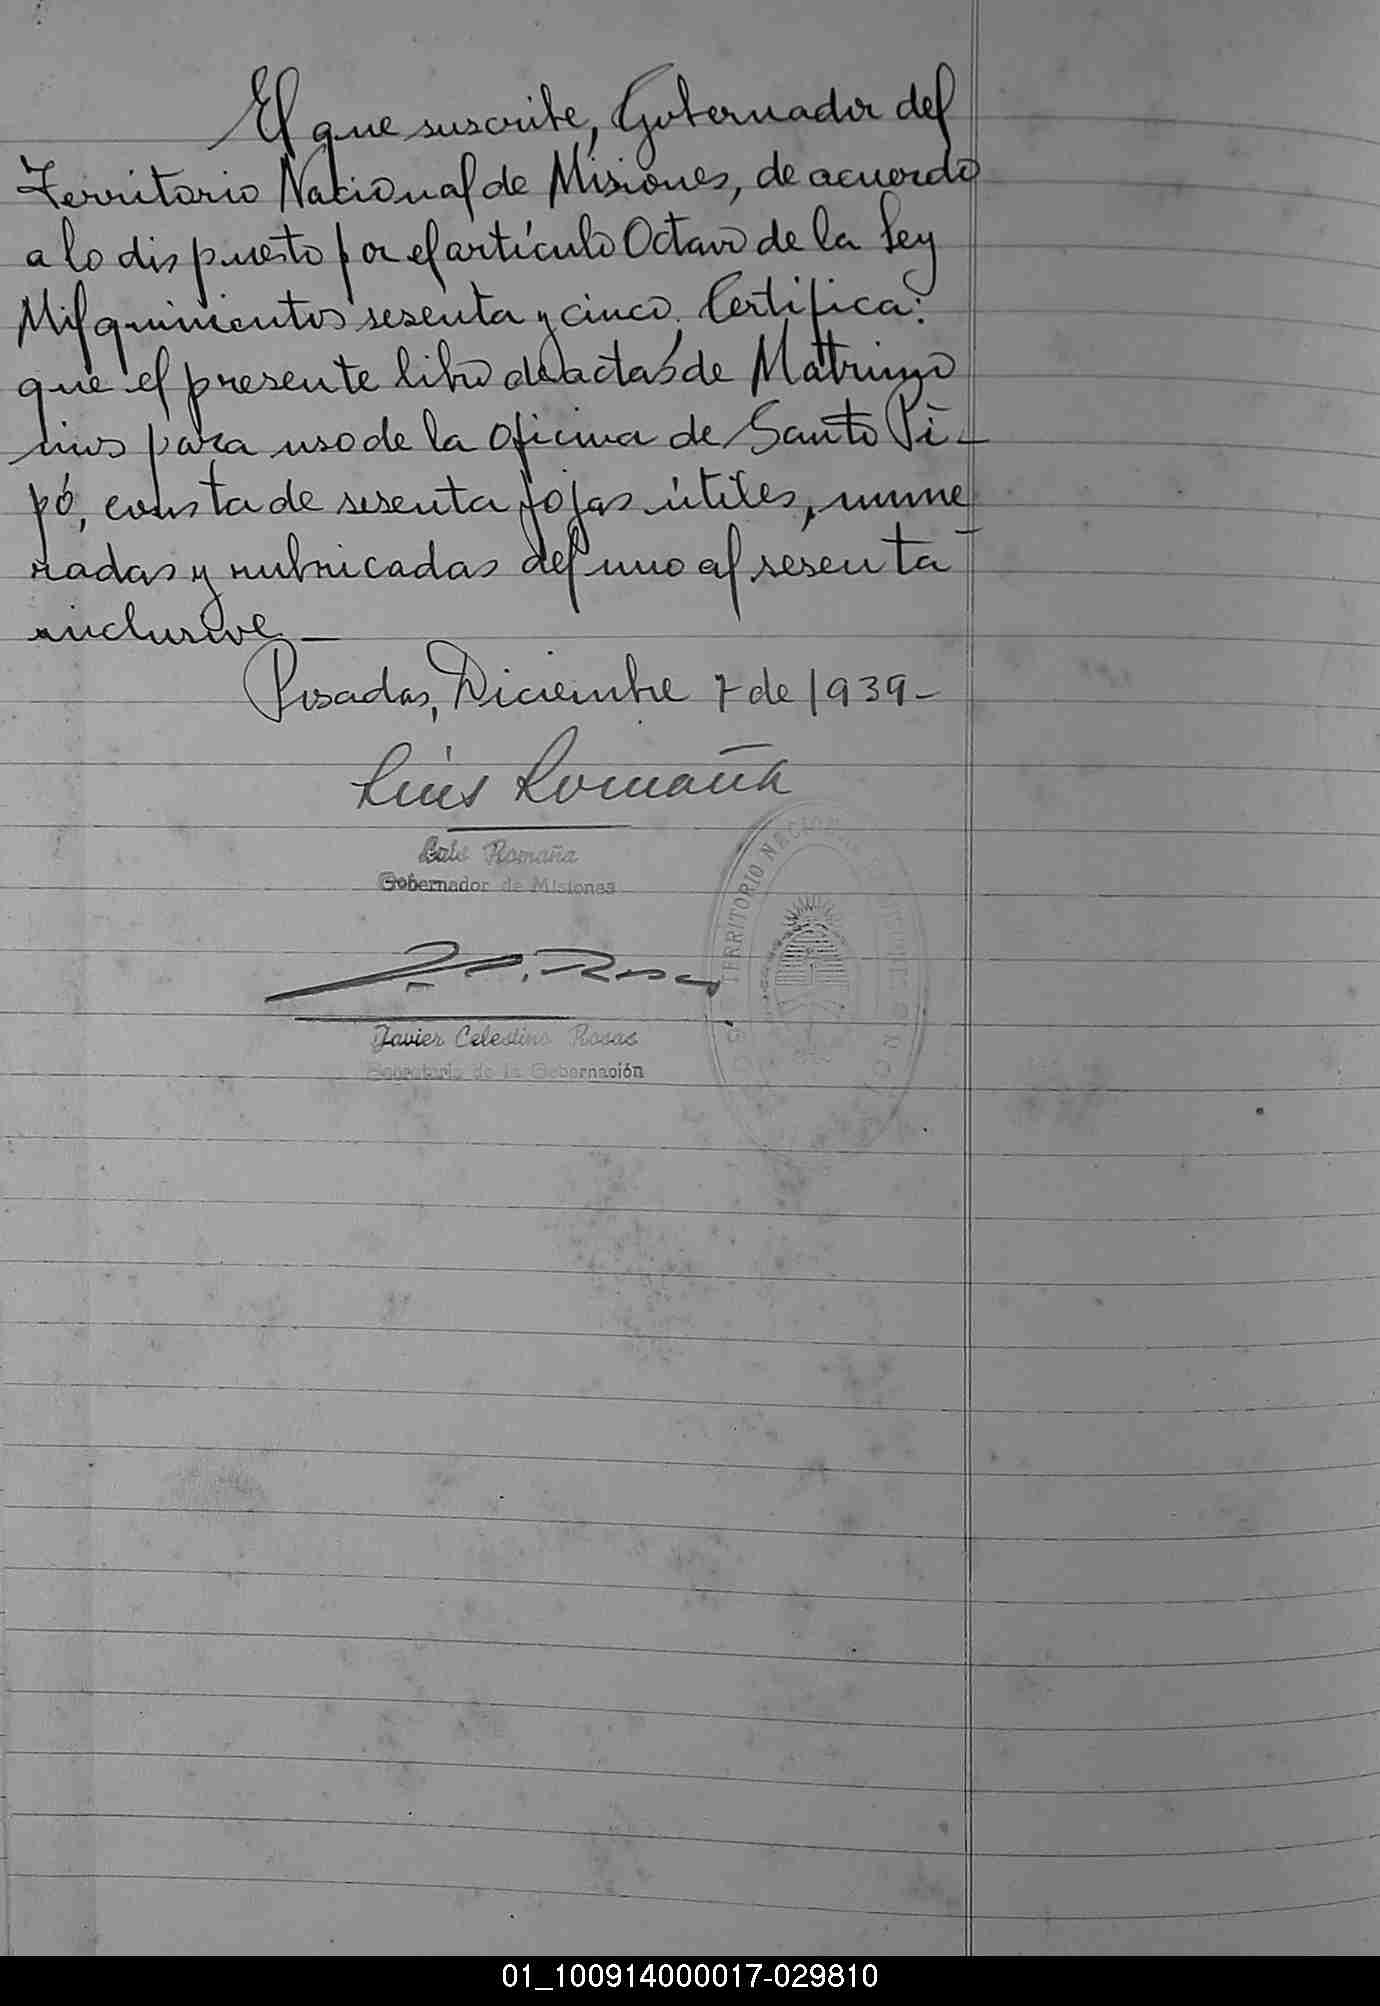 El que suscribe, Gobernador del
Territorio Nacional de Misiones, de acuerdo
a lo dispuesto por el artículo Octavo de la Ley
Mil quinientos sesenta y cinco, Certifica:
que el presente libro de actas de Matrimo
nios para uso de la oficina de Santo Pi-
pó, consta de sesenta fojas útiles, nume
radas y rubricadas del uno al sesenta
inclusive.—
Posadas, Diciembre 7 de 1939-
Luis Romaña
Luis Romaña
Gobernador de Misiones
J. C. Rosas
Javier Celestino Rosas
Secretario de la Gobernación
TERRITORIO NACIONAL
01_100914000017-029810